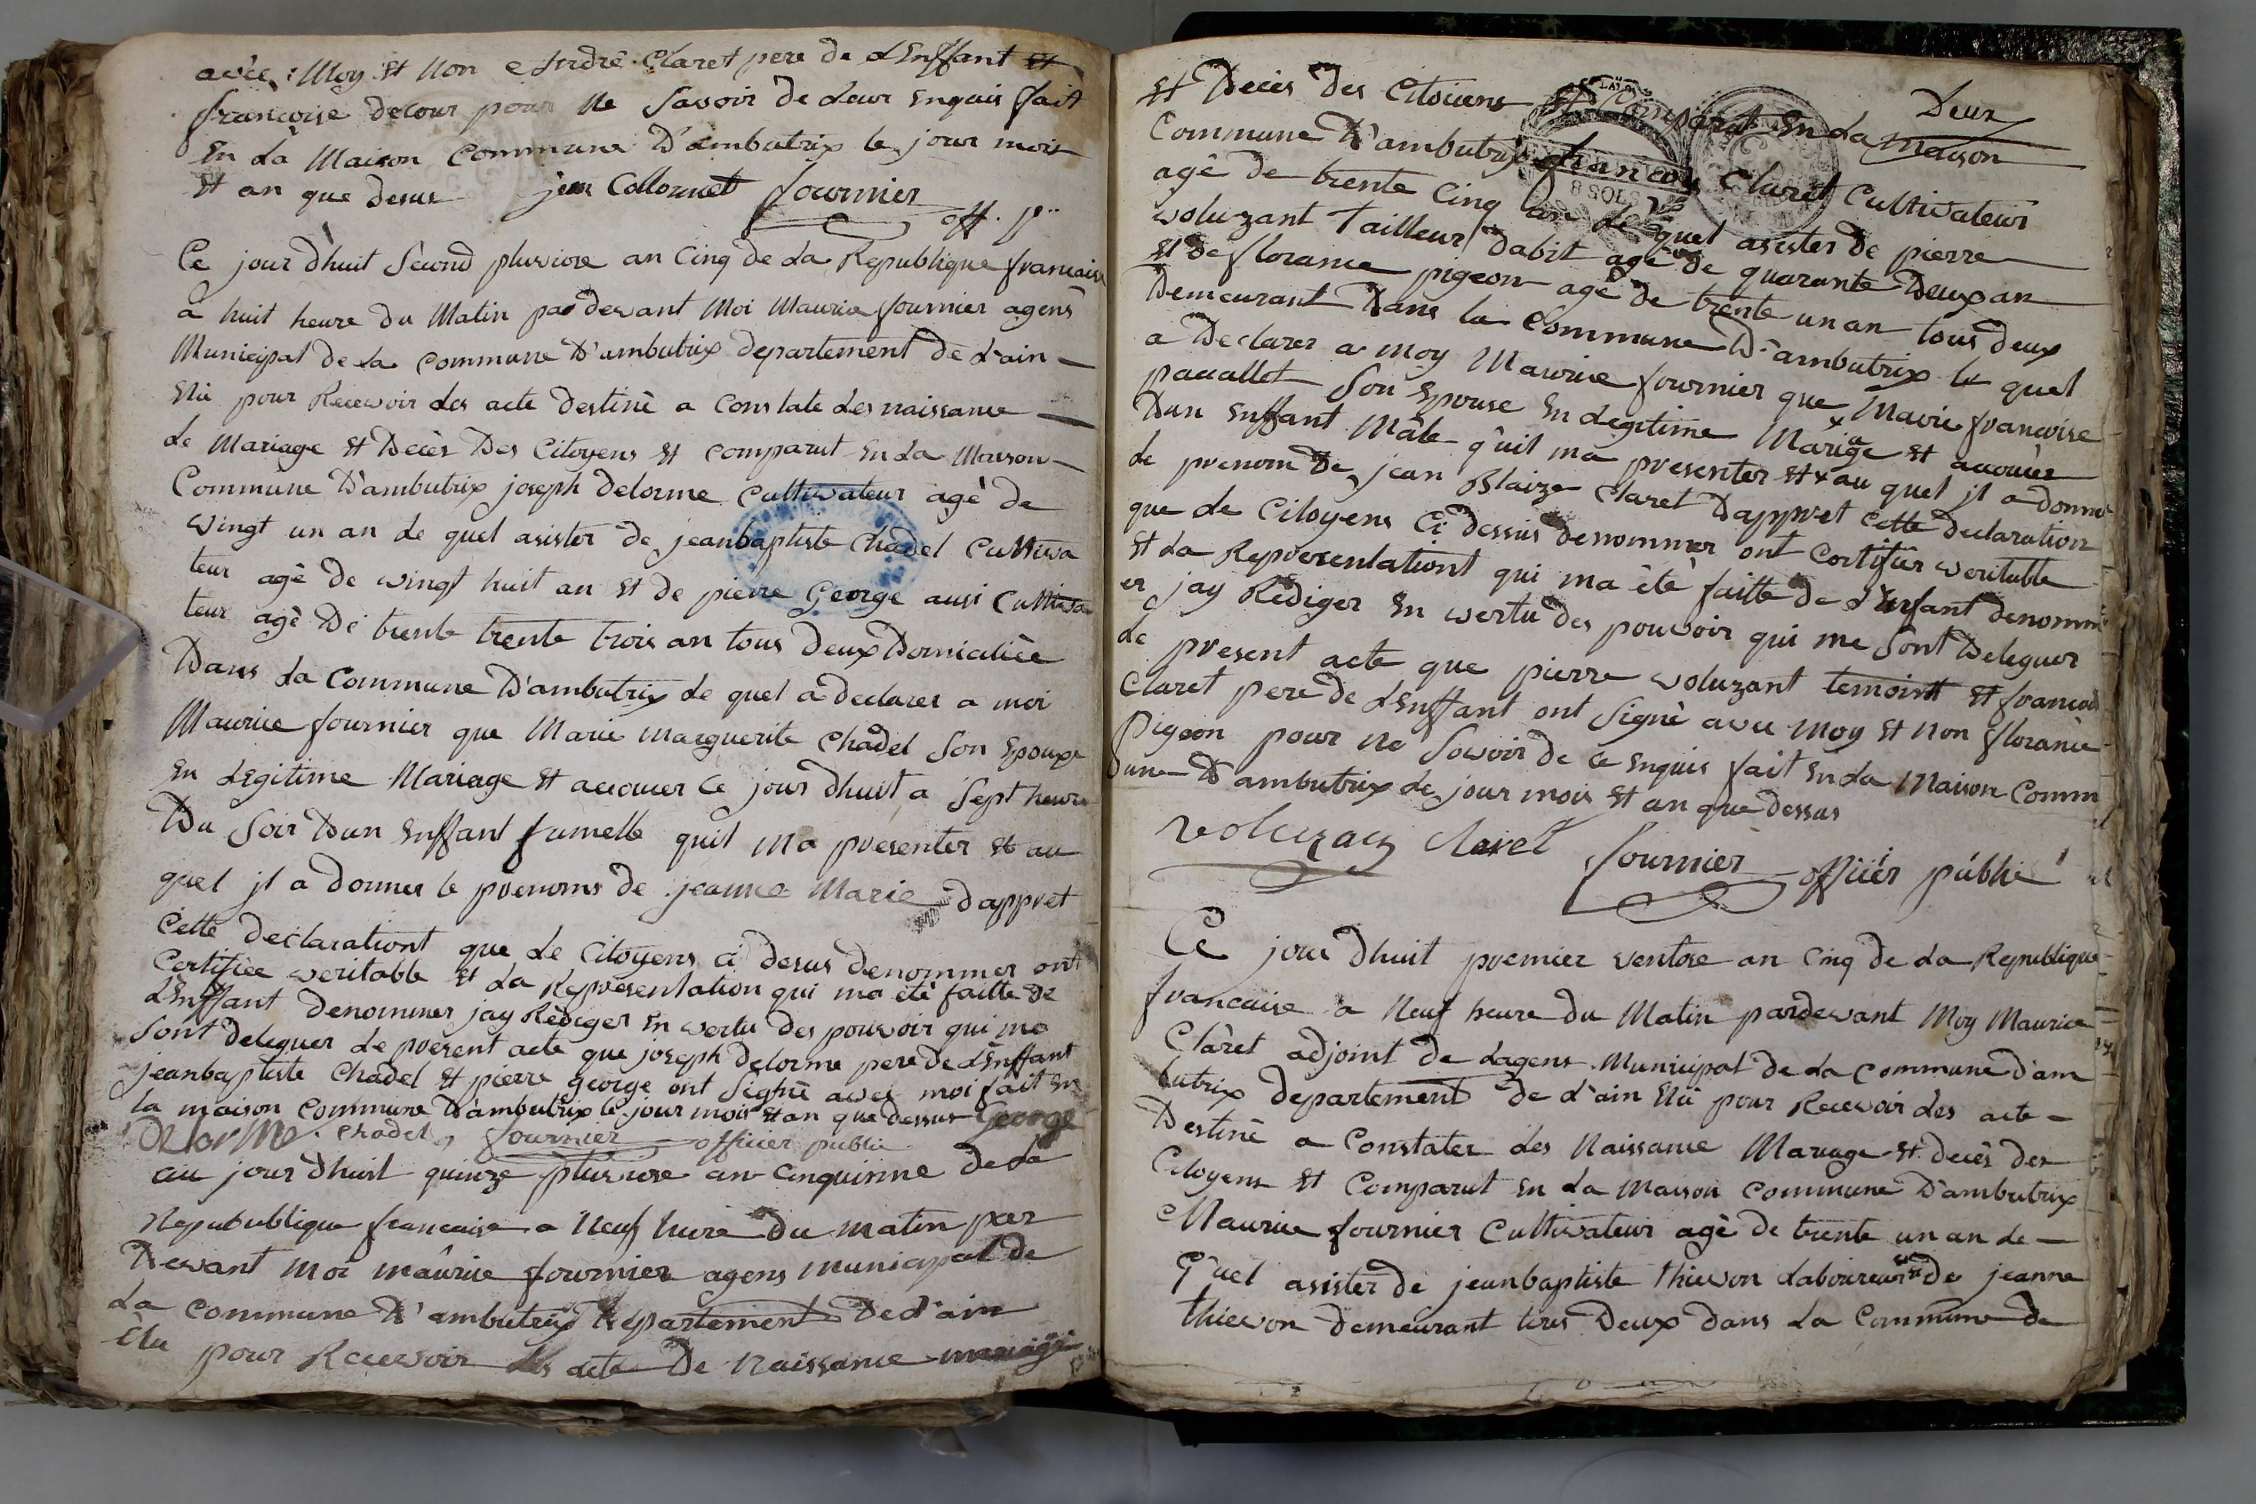 avec Moy Et Non Andre Claret pere de dEnffant Et
francoise delour pour Ne Savoir de Leur Enquis fait
En La Maison Commune D'ambutrix le jour mois
Et an que desus jean Collomet fournier off. p.
Ce jour dhuit Second pluviose an Cinq de La Republique francaise
a huit heure du Matin par devant Moi Maurice fournier agens
Municipal de La Commune D'ambutrix departement de L'ain
Elü pour Recevoir Les acte destinè a constate Les naissance
de Mariage Et Decès Des Citoyens Et Comparut En La Maison
Commune D'ambutrix joseph delorme Cultivateur agè de
vingt un an Le quel asister de jeanbaptiste Chadel Cultiva
teur agè de vingt huit an Et de pierre George ausi Cultiva
teur agè de trente trente trois an tous Deux Domicilièe
Dans La Commune D'ambutrix Le quel a declarer a moi
Maurice fournier que Marie Marguerite Chadel Son Epouxe
En Legitime Mariage Et accouer Ce jour dhuit a Sept heure
Du Soir Dun Enffant fumelle quil Ma presenter Et au
quel jl a donner le prenoms de jeanne Marie dappret
Cette declarationt que Le Citoyens ci desus Denommer ont
Certifièe veritable Et La Representation qui ma etè faitte de
LEnffant Denommer jay Rèdiger En vertu des pouvoir qui me
Sont deleguer Le present acte que joseph delorme pere de LEnffant
jeanbaptiste Chadel Et pierre George ont Signè avec moi fait En
la maison Commune D'ambutrix le jour mois Et an que dessus George
DelorMe Chadel fournier officier public
au jour dhuit quinze pluviose an cinquieme de La
Repubublique francaise a Neuf hure du matin par
Devant moi maûrice fournier agens municipal de
La Commune D'ambutrix Departement De L'ain
Elu pour Recevoir Les acte De Naissance mariage
Deux
Et Decès des Citoiiens Et Comparut En La Maison
Commune D'ambutrix francois Claret Cultivateur
agè de trente Cinq an Le quel asister de pierre
voluzant Tailleur Dabit agè de quarante Deux an
Et de florance pigeon agè de trente un an tous deux
Demeurant Dans la Commune D'ambutrix le quel
a Declarer a Moy Maurice fournier que Marie francoise
pacallet Son Epouse En Legitime Mariage Et accouèr
Dun Enffant Mâle qùil ma presenter Et au quel jl a donner
le prenom de jean Blaize Claret Dappret Cette Declaration
que Le Citoyens Ci dessus denommer ont Certifièr veritable
Et La Representationt qui ma ètè faitte de LEnfant denomm
er jay Rèdiger En vertu des pouvoir qui me Sont Deleguer
Le present acte que pierre voluzant temoint Et francois
Claret pere de LEnffant ont Signè avec Moy Et Non florance
Pigeon pour Ne Sovoir de Ce Enquis fait En La Maison Comm
une D'ambutrix Le jour mois Et an que dessus
voluzan Claret fournier officièr pùblic
Ce jour dhuit premier ventose an Cinq de La Republique
francaise a Neuf heure du Matin pardevant Moy Maurice
Clàret adjoint de Lagens Municipal de La Commune d'am
butrix departement de L'ain Elü pour Recevoir Les acte
Destinè a Constater Les Naissance Mariage Et decès des
Citoyens Et Comparut En La Maison Commune D'ambutrix
Maurice fournier Cultivateur agè de trente un an Le
Quel asister de jeanbaptiste thievon Laboureur Et de jeanne
thievon demeurant tous Deux dans La Commune de